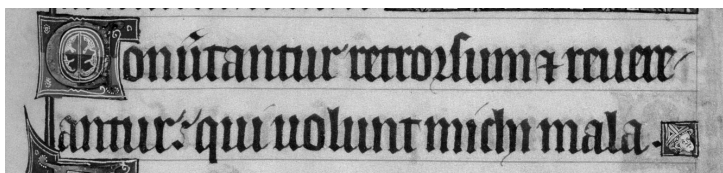 Conũtantur retrorsum ⁊ reuere
antur: qui uolunt michi mala.